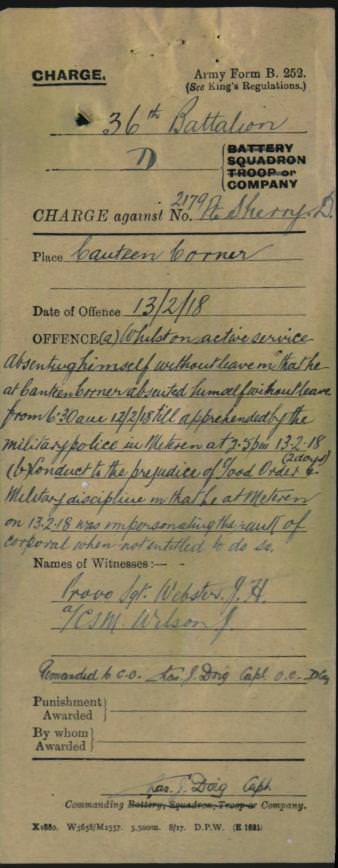 CHARGE.
Army Form B. 252.
(See King's Regulations.)
36th Battalion
D
BATTERY
SQUADRON
TROOP or
COMPANY
CHARGE against No. 2179 Pte Sherry. D.
Place Canteen Corner
Date of Offence 13/2/18
OFFENCE (a) Whilst on active service
absenting himself without leave in that he
at Canteen Corner absented himself without leave
from 6.30 am 12/2/18 till apprehended by the
military police in Meteren at 3.5 pm 13-2-18
(2 days)
(b) Conduct to the prejudice of Good Order &
Military discipline in that he at Meteren
on 13-2-18 was impersonating the rank of
corporal when not entitled to do so.
Names of Witnesses:—
Provo Sgt. Webster. J. H.
a/CSM. Wilson J.
Remanded to C.O. Jas. J. Doig Capt O.C. D Coy
Punishment
Awarded
By whom
Awarded
Jas. J. Doig Capt
Commanding Battery, Squadron, Troop or Company.
X1880. W5658/M2357. 8/17. D.P.W. (E 1821)